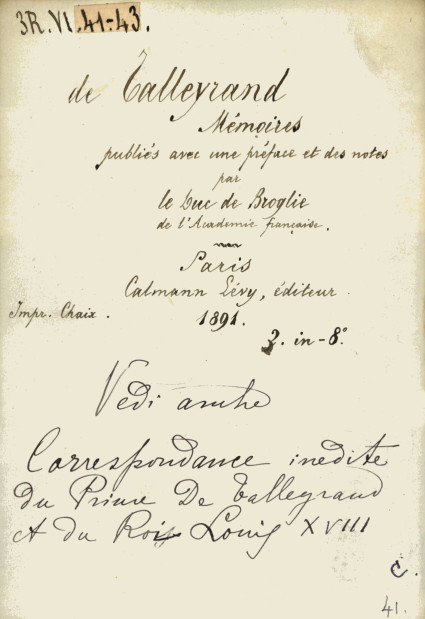 3R.VI.41-43.
de Talleyrand
Mémoires
publiés avec une préface et des notes
par
le Duc de Broglie
de l'Academie française.
Paris
Calmann Lévy, éditeur.
Impr. Chaix.
1891.
2. in-8°
Vedi anche
Correspondance inedite
du Prince De Talleyrand
et du Roi Louis XVIII
C.
41.